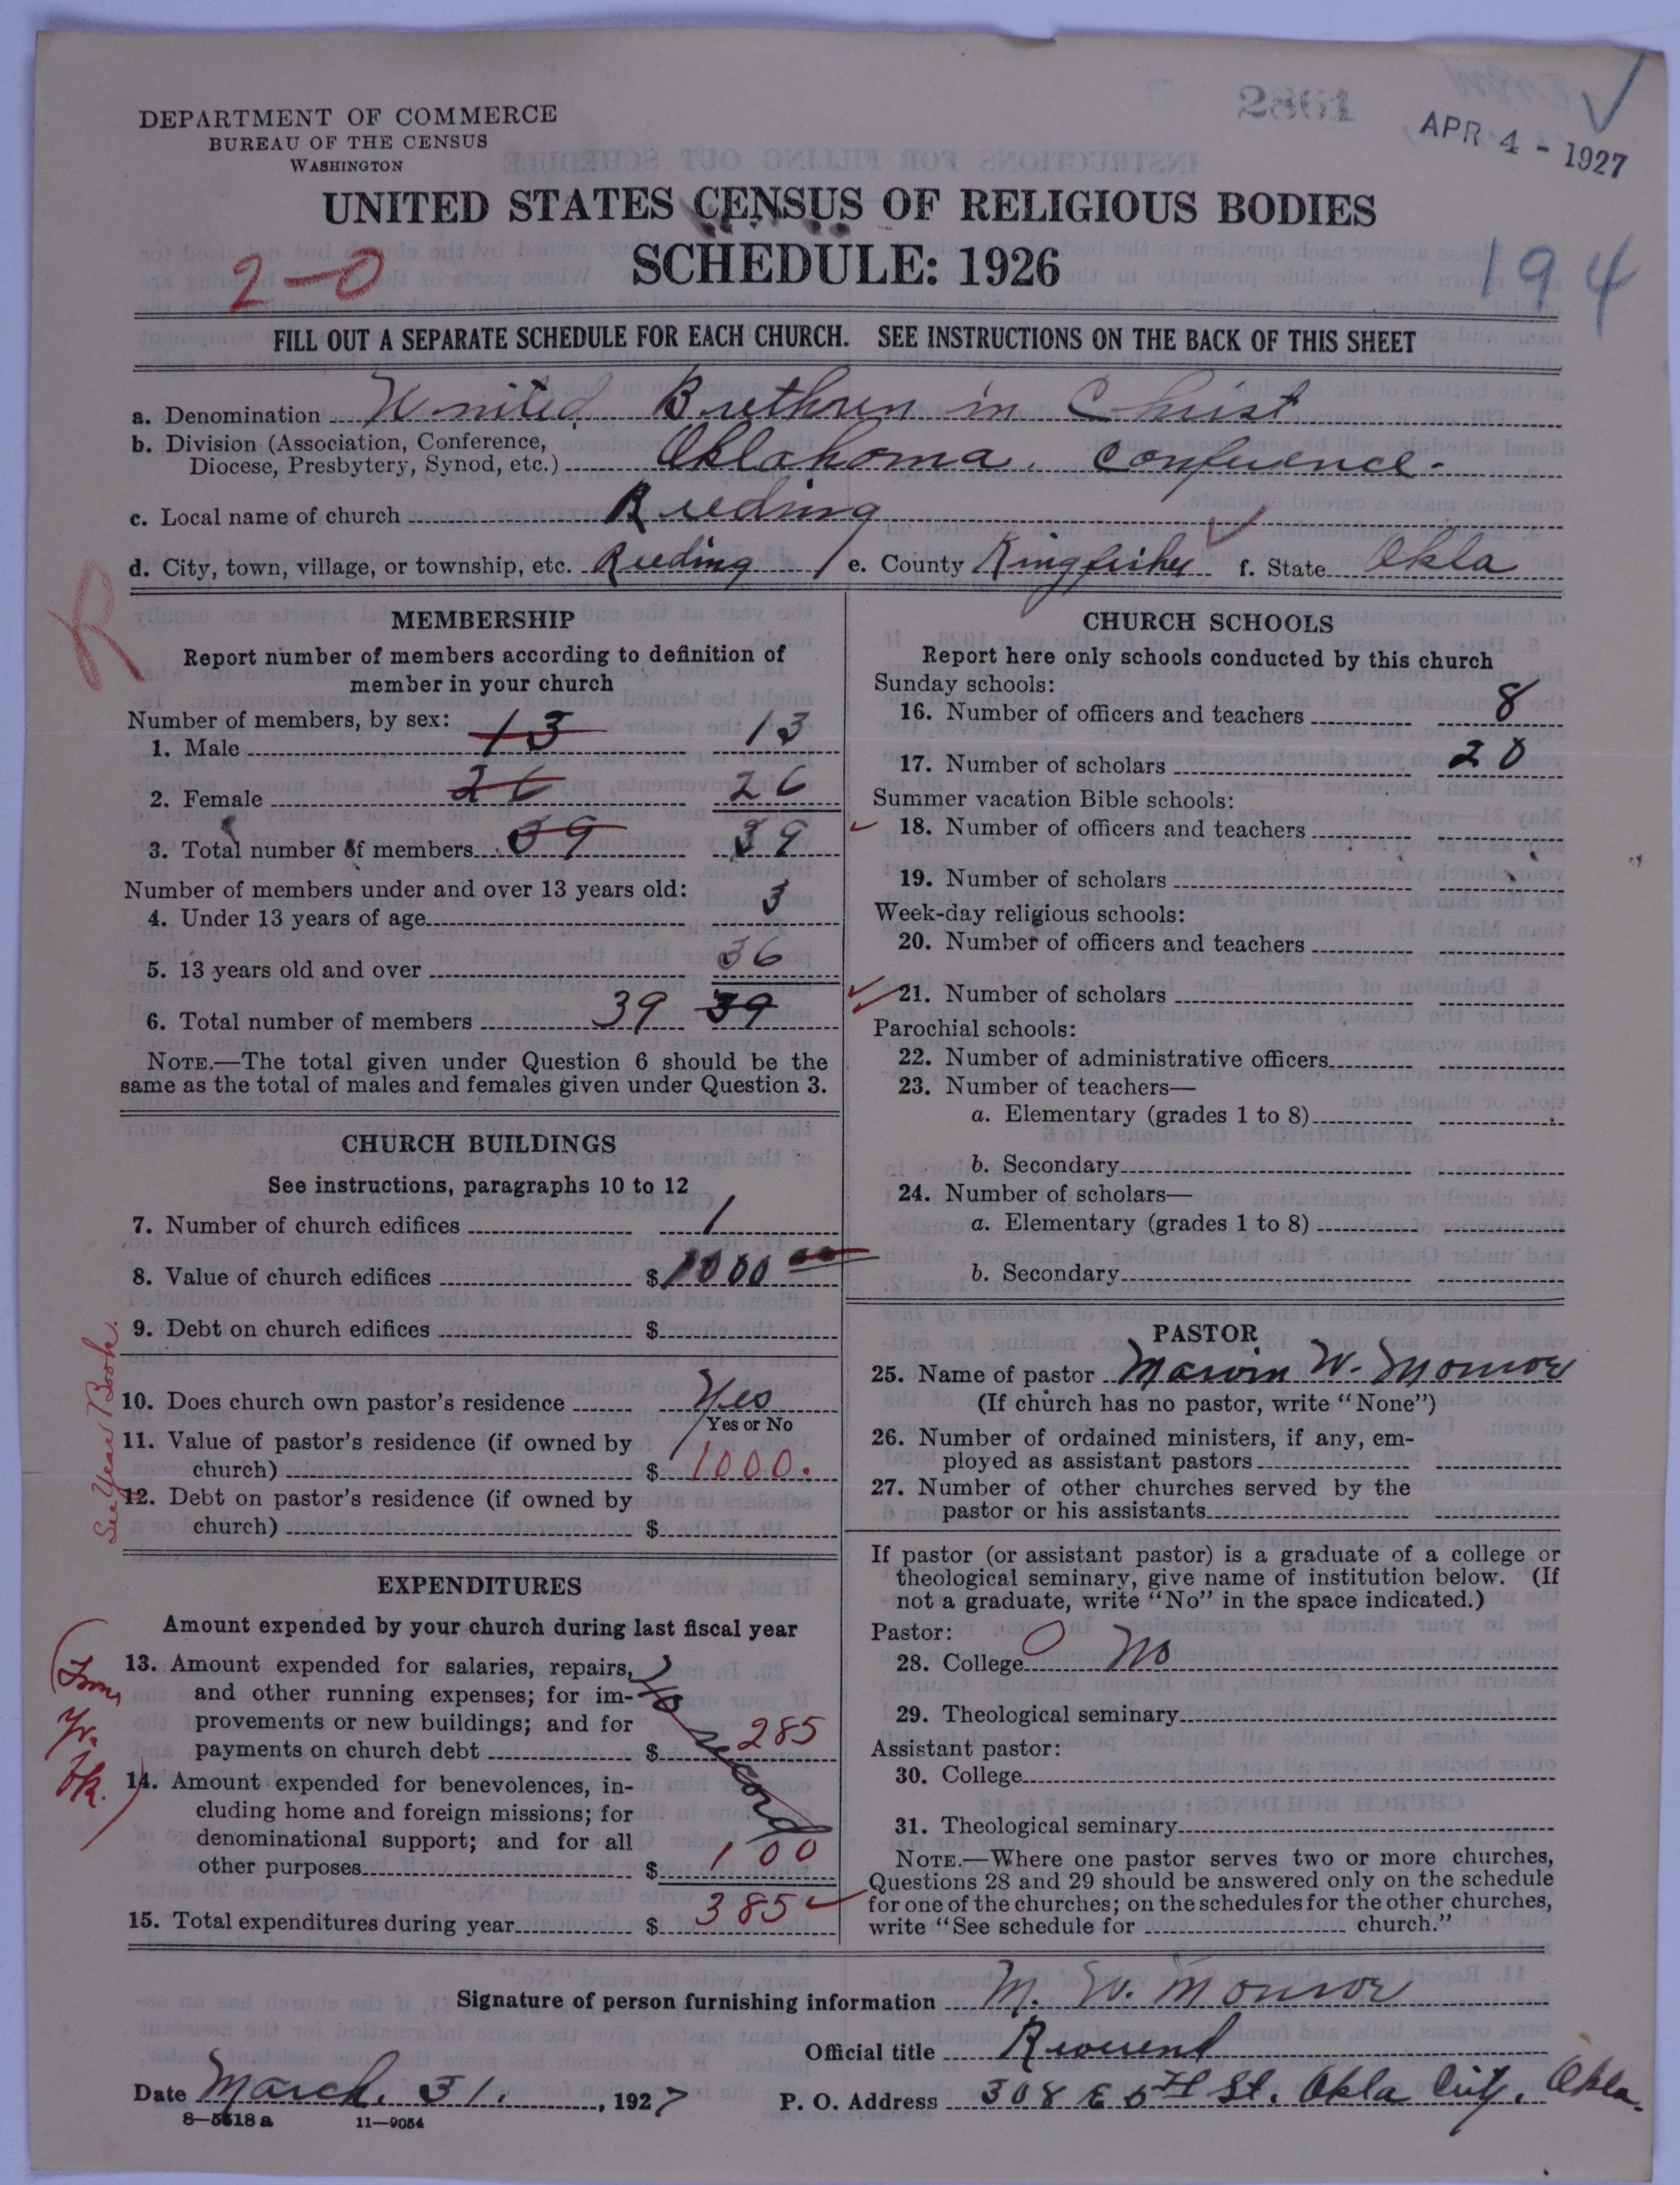 2861
APR 4 - 1927
DEPARTMENT OF COMMERCE
BUREAU OF THE CENSUS
WASHINGTON
UNITED STATES CENSUS OF RELIGIOUS BODIES
SCHEDULE: 1926
2-0
194
FILL OUT A SEPARATE SCHEDULE FOR EACH CHURCH. SEE INSTRUCTIONS ON THE BACK OF THIS SHEET
a. Denomination United Brethren in Christ
b. Division (Association, Conference,
Diocese, Presbytery, Synod, etc.) Oklahoma Conference.
c. Local name of church Reeding
d. City, town, village, or township, etc. Reeding e. County Kingfisher f. State Okla
R
MEMBERSHIP
Report number of members according to definition of
member in your church
Number of members, by sex:
1. Male 13 13
2. Female 26 26
3. Total number of members 39 39
Number of members under and over 13 years old:
4. Under 13 years of age 3
5. 13 years old and over 36
6. Total number of members 39 39
NOTE.—The total given under Question 6 should be the
same as the total of males and females given under Question 3.
CHURCH BUILDINGS
See instructions, paragraphs 10 to 12
7. Number of church edifices 1
8. Value of church edifices $ 1000 00
9. Debt on church edifices $
10. Does church own pastor's residence Yes
Yes or No
11. Value of pastor's residence (if owned by
church) $ 1000.
12. Debt on pastor's residence (if owned by
church) $
See Year Book.
EXPENDITURES
Amount expended by your church during last fiscal year
13. Amount expended for salaries, repairs,
and other running expenses; for im-
provements or new buildings; and for
payments on church debt $ 285
No record
14. Amount expended for benevolences, in-
cluding home and foreign missions; for
denominational support; and for all
other purposes $ 100
15. Total expenditures during year $ 385
(From
Yr.
bk.)
CHURCH SCHOOLS
Report here only schools conducted by this church
Sunday schools:
16. Number of officers and teachers 8
17. Number of scholars 20
Summer vacation Bible schools:
18. Number of officers and teachers
19. Number of scholars
Week-day religious schools:
20. Number of officers and teachers
21. Number of scholars
Parochial schools:
22. Number of administrative officers
23. Number of teachers—
a. Elementary (grades 1 to 8)
b. Secondary
24. Number of scholars—
a. Elementary (grades 1 to 8)
b. Secondary
PASTOR
25. Name of pastor Marvin W. Monroe
(If church has no pastor, write "None")
26. Number of ordained ministers, if any, em-
ployed as assistant pastors
27. Number of other churches served by the
pastor or his assistants
If pastor (or assistant pastor) is a graduate of a college or
theological seminary, give name of institution below. (If
not a graduate, write "No" in the space indicated.)
Pastor:
28. College 0 No
29. Theological seminary
Assistant pastor:
30. College
31. Theological seminary
NOTE.—Where one pastor serves two or more churches,
Questions 28 and 29 should be answered only on the schedule
for one of the churches; on the schedules for the other churches,
write "See schedule for church."
Signature of person furnishing information M. W. Monroe
Official title Reverend
Date March. 31, 1927 P. O. Address 308 E 6th St. Okla City, Okla.
8—5518 a 11—9054